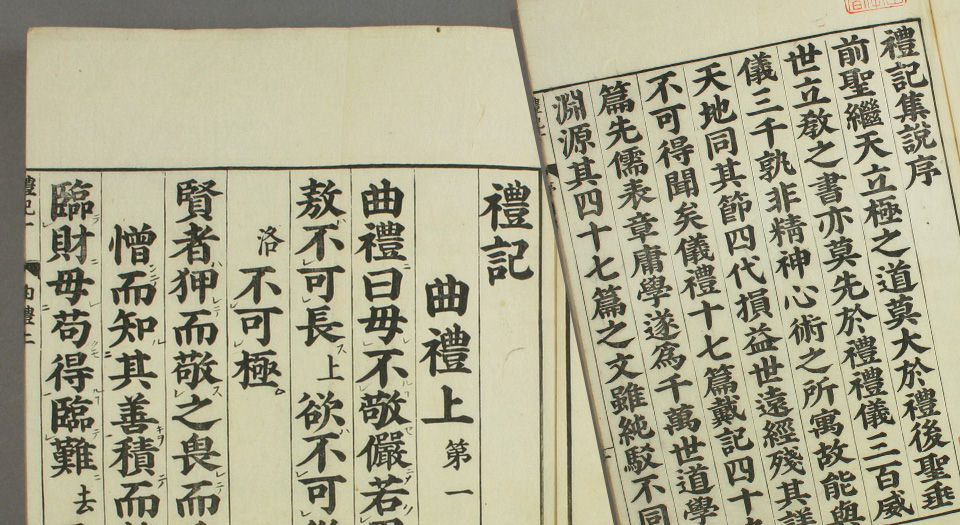 禮記集說序
前聖繼天立極之道莫大於禮後聖垂
世立敎之書亦莫先於禮禮儀三百威
儀三千孰非精神心術之所寓故能與
天地同其節四代損益世遠經殘其詳
不可得聞矣儀禮十七篇戴記四十
篇先儒表章庸學遂爲千萬世道學
淵源其四十七篇之文雖純駁不同
禮記
曲禮上 第一
曲禮曰毋不敬儼若
敖不可長上欲不可
洛不可極。
賢者狎而敬之畏而
憎而知其善積而
臨財毋苟得臨難去